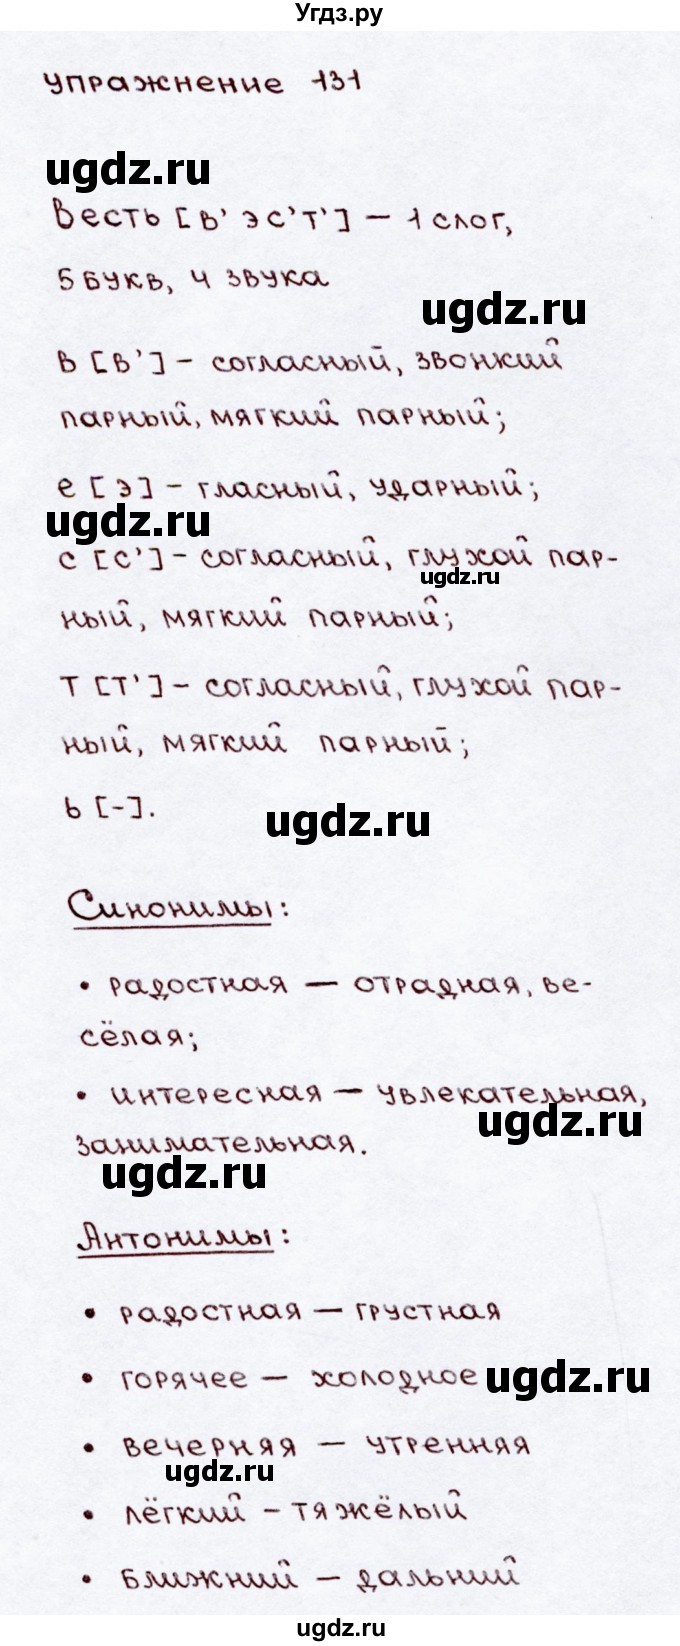 Угдз.ру
упражнение 131
ugdz.ru
Весть [в' эс'т'] – 1 слог,
5 букв, 4 звука
ugdz.ru
в [в'] – согласный, звонкий
парный, мягкий парный;
е [э] – гласный, ударный;
ugdz.ru
с [с'] – согласный, глухой пар-
ugdz.ru
ный, мягкий парный;
т [т'] – согласный, глухой пар-
ный, мягкий парный;
ь [-].
ugdz.ru
Синонимы:
• радостная – отрадная, ве-
сёлая;
• интересная – увлекательная,
ugdz.ru
занимательная.
ugdz.ru
Антонимы:
• радостная – грустная
• горячее – холодное
ugdz.ru
• вечерняя – утренняя
ugdz.ru
• лёгкий – тяжёлый
• ближний – дальний
ugdz.ru